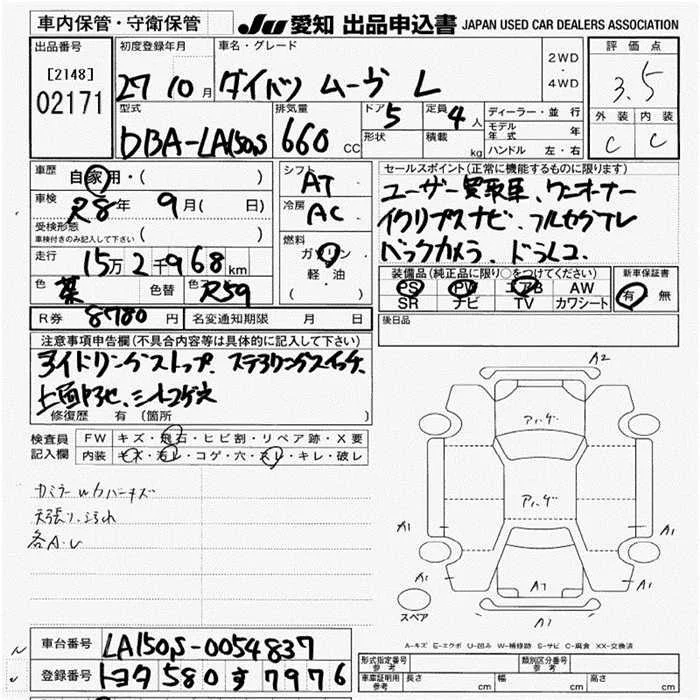 車内保管・守衛保管
JU 愛知 出品申込書 JAPAN USED CAR DEALERS ASSOCIATION
出品番号
[2148]
02171
初度登録年月
27 10 月
車名・グレード
ダイハツ ムーヴ L
2WD
・
4WD
評価点
3.5
外装 内装
C C
型式
DBA-LA150S
排気量
660 CC
ドア 5
形状
定員 4 人
積載 kg
ディーラー・並行
モデル年式 年
ハンドル 左・右
車歴
自家用・( )
車検
R8年 9月( 日)
受検形態
車検付きのみ記入して下さい ( )
走行
15万2千968km
色 色替 色No. R59
R券 8780 円
名変通知期限 月 日
シフト
AT
冷房
AC
燃料
ガソリン
軽・油
( )
セールスポイント(正常に機能するものに限ります)
ユーザー買取車、ワンオーナー
イクリプスナビ、フルセグTV
バックカメラ、ドラレコ.
装備品(純正品に限り○をつけてください)
PS PW エアB AW
SR ナビ TV カワシート
新車保証書
有・無
後日品
注意事項申告欄(不具合内容等は具体的に記入して下さい)
修復歴 有(箇所 )
検査員
記入欄
FW キズ・飛石・ヒビ割・リペア跡・X要
内装 キズ・汚レ・コゲ・穴・スレ・キレ・破レ
各A・U
A2
A1
A1
A1
A1
A1
スペア
A1
A-キズ E-エクボ U-凹み W-補修跡 S-サビ C-腐食 XX-交換済
車台番号 LA150S-0054837
登録番号 トヨタ 580 す 7976
形式指定番号
参考
類別区分番号
参考
車庫証明用
参考
長さ cm 幅 cm 高さ cm